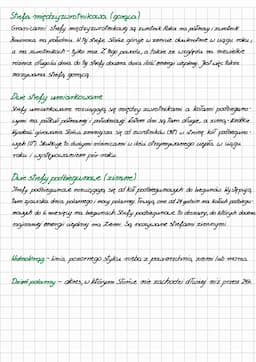 Strefa międzyzwrotnikowa (gorąca)
Granicami strefy międzyzwrotnikowej są zwrotnik Raka na północy i zwrotnik
Koziorożca na południu. W tej strefie Słońce góruje w zenicie dwukrotnie w ciągu roku,
a na zwrotnikach - tylko raz. Z tego powodu, a także ze względu na niewielkie
różnice długości dnia do tej strefy dociera dużo ilość energii cieplnej. Jest więc także
nazywana strefą gorącą.
Dwie strefy umiarkowane
Strefy umiarkowane rozciągają się między zwrotnikami a kołami podbieguno-
wymi na półkuli północnej i południowej. Latem dni są tam długie, a zimą - krótkie.
Wysokość górowania Słońca zmniejsza się od zwrotników (90°) w stronę kół podbieguno-
wych (0°). Skutkuje to dużymi różnicami w ilości otrzymywanego ciepła w ciągu
roku i występowaniem pór roku.
Dwie strefy podbiegunowe (zimne)
Strefy podbiegunowe rozciągają się od kół podbiegunowych do biegunów. Występują
tam zjawiska dnia polarnego i nocy polarnej. Trwają one od 24 godzin na kołach podbiegu-
nowych do 6 miesięcy na biegunach. Strefy podbiegunowe to obszary, do których dociera
najmniej energii cieplnej na Ziemi. Są nazywane strefami zimnymi.
Widnokrąg - linia pozornego styku nieba z powierzchnią ziemi lub morza.
Dzień polarny - okres, w którym Słońce nie zachodzi dłużej niż przez 24h.